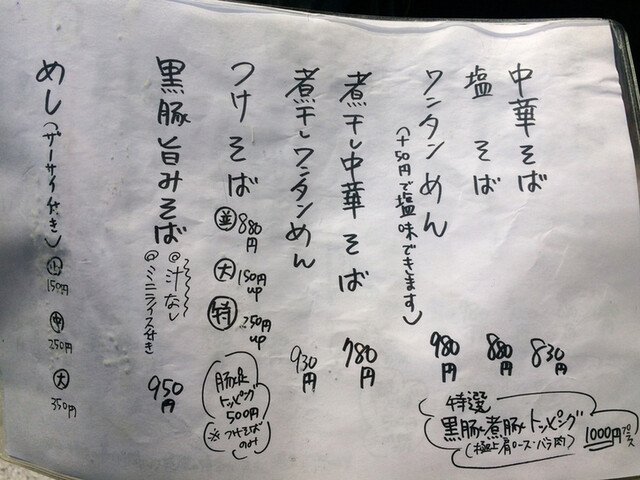 中華そば 830円
塩そば 880円
ワンタンめん 980円
(+50円で塩味できます)
煮干し中華そば 780円
煮干しワンタンめん 930円
つけそば 並 880円
大 150円up
特 250円up
豚足トッピング500円
(※つけそばのみ)
黒豚旨みそば 950円
◎汁なし
◎ミニライス付き
めし(ザーサイ付き)
小 150円
中 250円
大 350円
特選
黒豚煮豚トッピング 1000円プラス
(極上肩ロース・バラ肉)